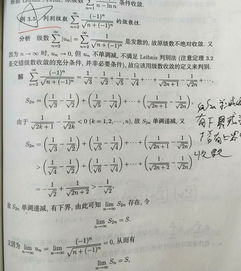 条件收敛.
例 3.5 判别级数 $\sum_{n=2}^{\infty} \frac{(-1)^n}{\sqrt{n+(-1)^n}}$ 的敛散性.
分析 级数 $\sum_{n=2}^{\infty} |u_n| = \sum_{n=2}^{\infty} \frac{1}{\sqrt{n+(-1)^n}}$ 是发散的, 故原级数不绝对收敛. 又
因为 n → ∞ 时, $u_n$ → 0, 但 $u_n$ 不单调减, 不满足 Leibniz 判别法 (注意定理 3.2
是交错级数收敛的充分条件, 并非必要条件), 故应该用级数收敛的定义来判别.
解 $\sum_{n=2}^{\infty} \frac{(-1)^n}{\sqrt{n+(-1)^n}} = \frac{1}{\sqrt{3}} - \frac{1}{\sqrt{2}} + \frac{1}{\sqrt{5}} - \frac{1}{\sqrt{4}} + \cdots + \frac{1}{\sqrt{2n+1}} - \frac{1}{\sqrt{2n}} + \cdots,$
$S_{2n} = \left(\frac{1}{\sqrt{3}} - \frac{1}{\sqrt{2}}\right) + \left(\frac{1}{\sqrt{5}} - \frac{1}{\sqrt{4}}\right) + \cdots + \left(\frac{1}{\sqrt{2n+1}} - \frac{1}{\sqrt{2n}}\right).$
由于 $\frac{1}{\sqrt{2k+1}} - \frac{1}{\sqrt{2k}} < 0$ (k = 1, 2, ⋯, n), 故 $S_{2n}$ 单调递减, 又
$S_{2n} = \left(\frac{1}{\sqrt{3}} - \frac{1}{\sqrt{2}}\right) + \left(\frac{1}{\sqrt{5}} - \frac{1}{\sqrt{4}}\right) + \cdots + \left(\frac{1}{\sqrt{2n+1}} - \frac{1}{\sqrt{2n}}\right)$
$> \left(\frac{1}{\sqrt{4}} - \frac{1}{\sqrt{2}}\right) + \left(\frac{1}{\sqrt{6}} - \frac{1}{\sqrt{4}}\right) + \cdots + \left(\frac{1}{\sqrt{2n+2}} - \frac{1}{\sqrt{2n}}\right)$
$= -\frac{1}{\sqrt{2}} + \frac{1}{\sqrt{2n+2}} > -\frac{1}{\sqrt{2}}.$
故 $S_{2n}$ 单调递减, 有下界, 由此可知 $\lim_{n\to\infty} S_{2n}$ 存在, 令
$\lim_{n\to\infty} S_{2n} = S.$
又因为 $\lim_{n\to\infty} u_n = \lim_{n\to\infty} \frac{(-1)^n}{\sqrt{n+(-1)^n}} = 0$, 从而有
$\lim_{n\to\infty} S_n = S,$
收敛